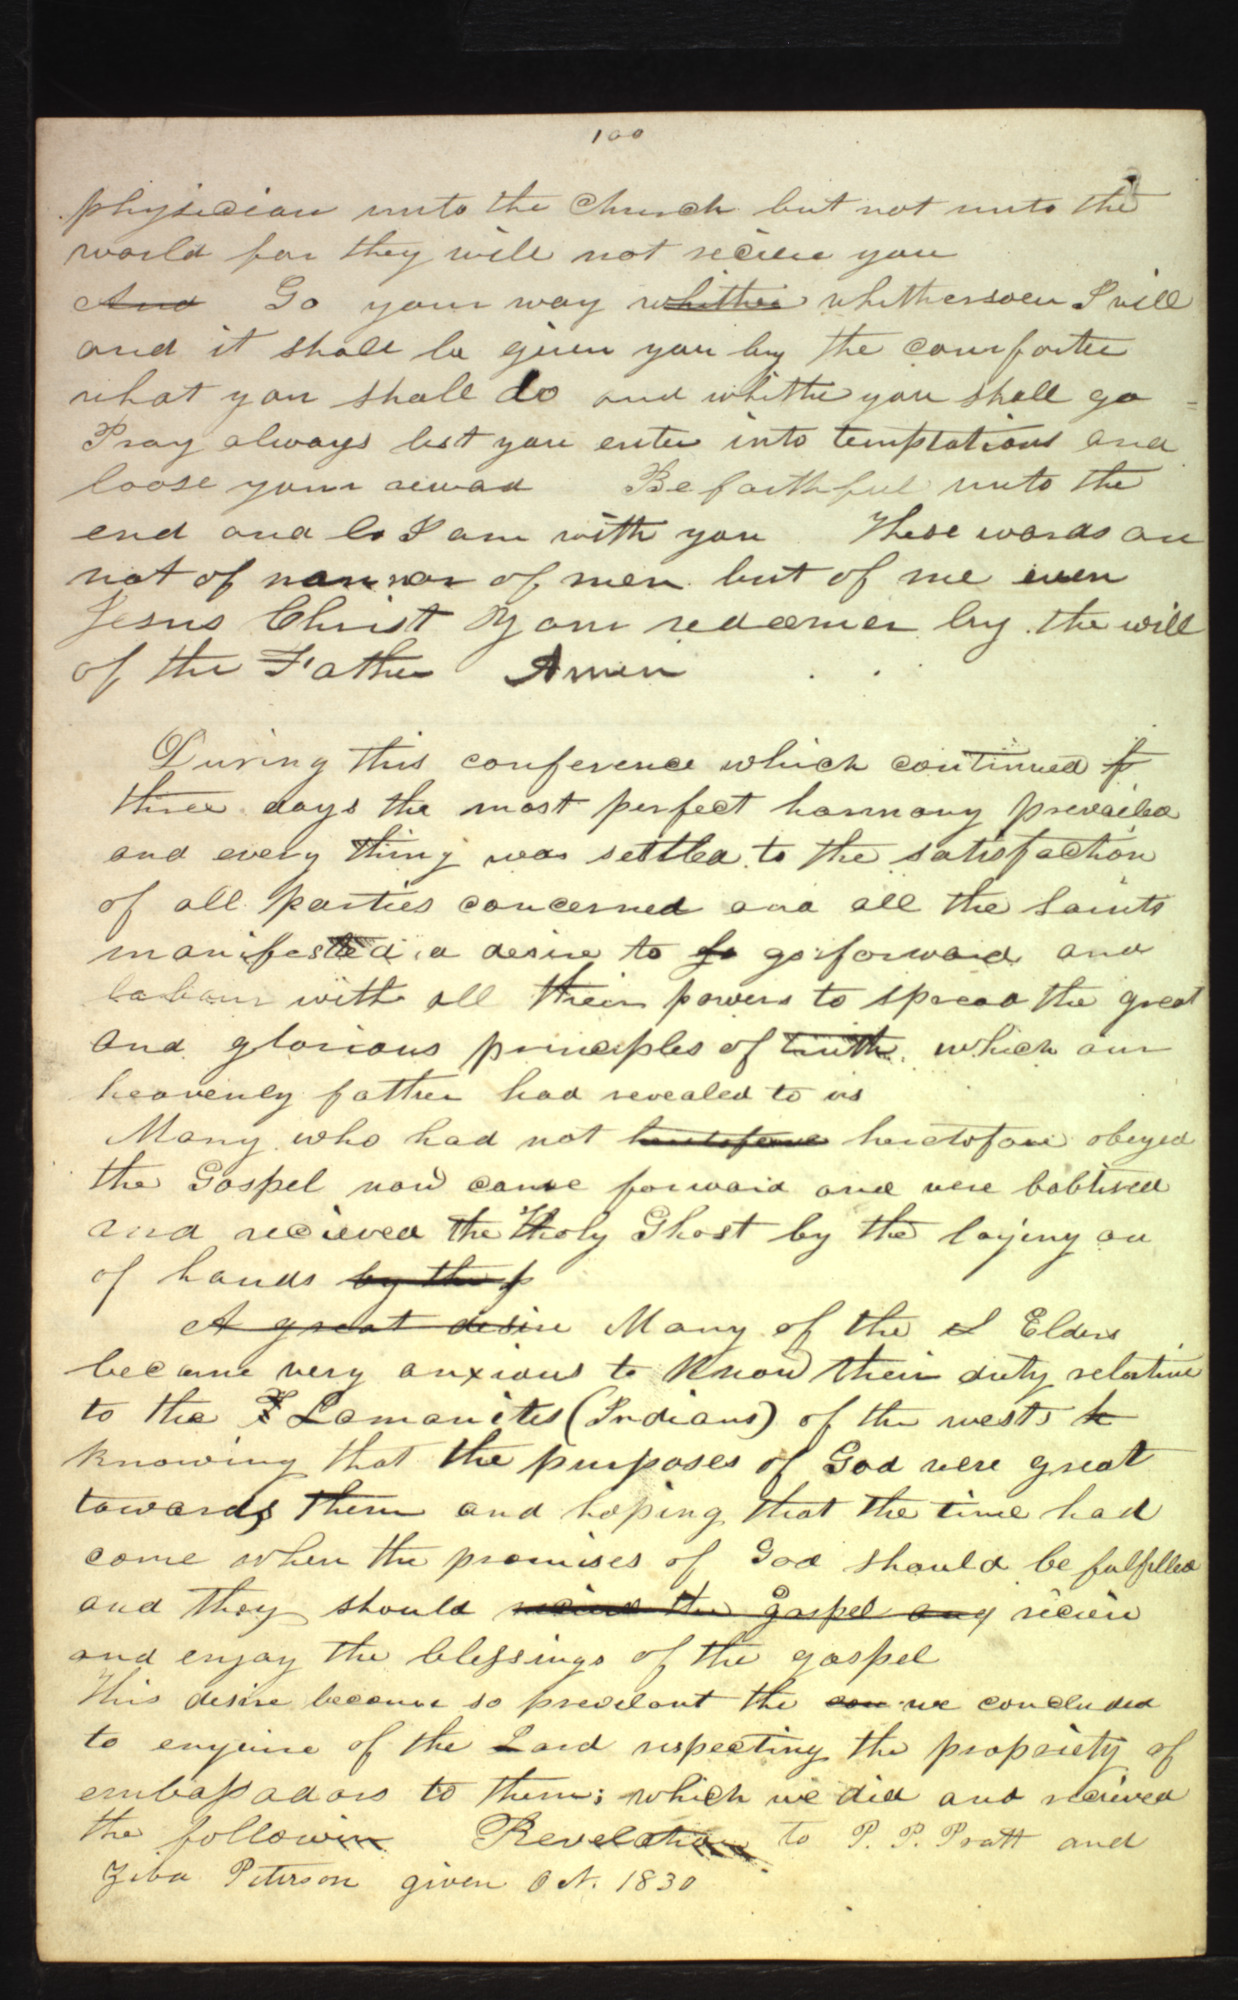 100
physician unto the Church but not unto the
world for they will not recieve you
And Go your way whither whithersoever I will
and it shall be given you by the comforter
what you shall do and whither you shall go
Pray always lest you enter into temptations and
loose your reward Be faithful unto the
end and lo I am with you These words are
not of man nor of men but of me even
Jesus Christ your redeemer by the will
of the Father Amen
During this conference which continued f
three days the most perfect harmony prevailed
and every thing was settled to the satisfaction
of all parties concerned and all the Saints
manifested a desire to go forward and
labour with all their powers to spread the great
and glorious principles of truth which our
heavenly father had revealed to us
Many who had not heretofore heretofore obeyed
the Gospel now came forward and were babtised
and recieved the Holy Ghost by the laying on
of hands by the p
A great desire Many of the Elders
became very anxious to know their duty relative
to the Lamanites (Indians) of the west
knowing that the purposes of God were great
towards them and hoping that the time had
come when the promises of God should be fulfilled
and they should recieve the gospel and recieve
and enjoy the blessings of the gospel
This desire became so prevelant the con we concluded
to enquire of the Lord respecting the propriety of
embassadors to them; which we did and recieved
the following Revelation to P. P. Pratt and
Ziba Peterson given Oct. 1830